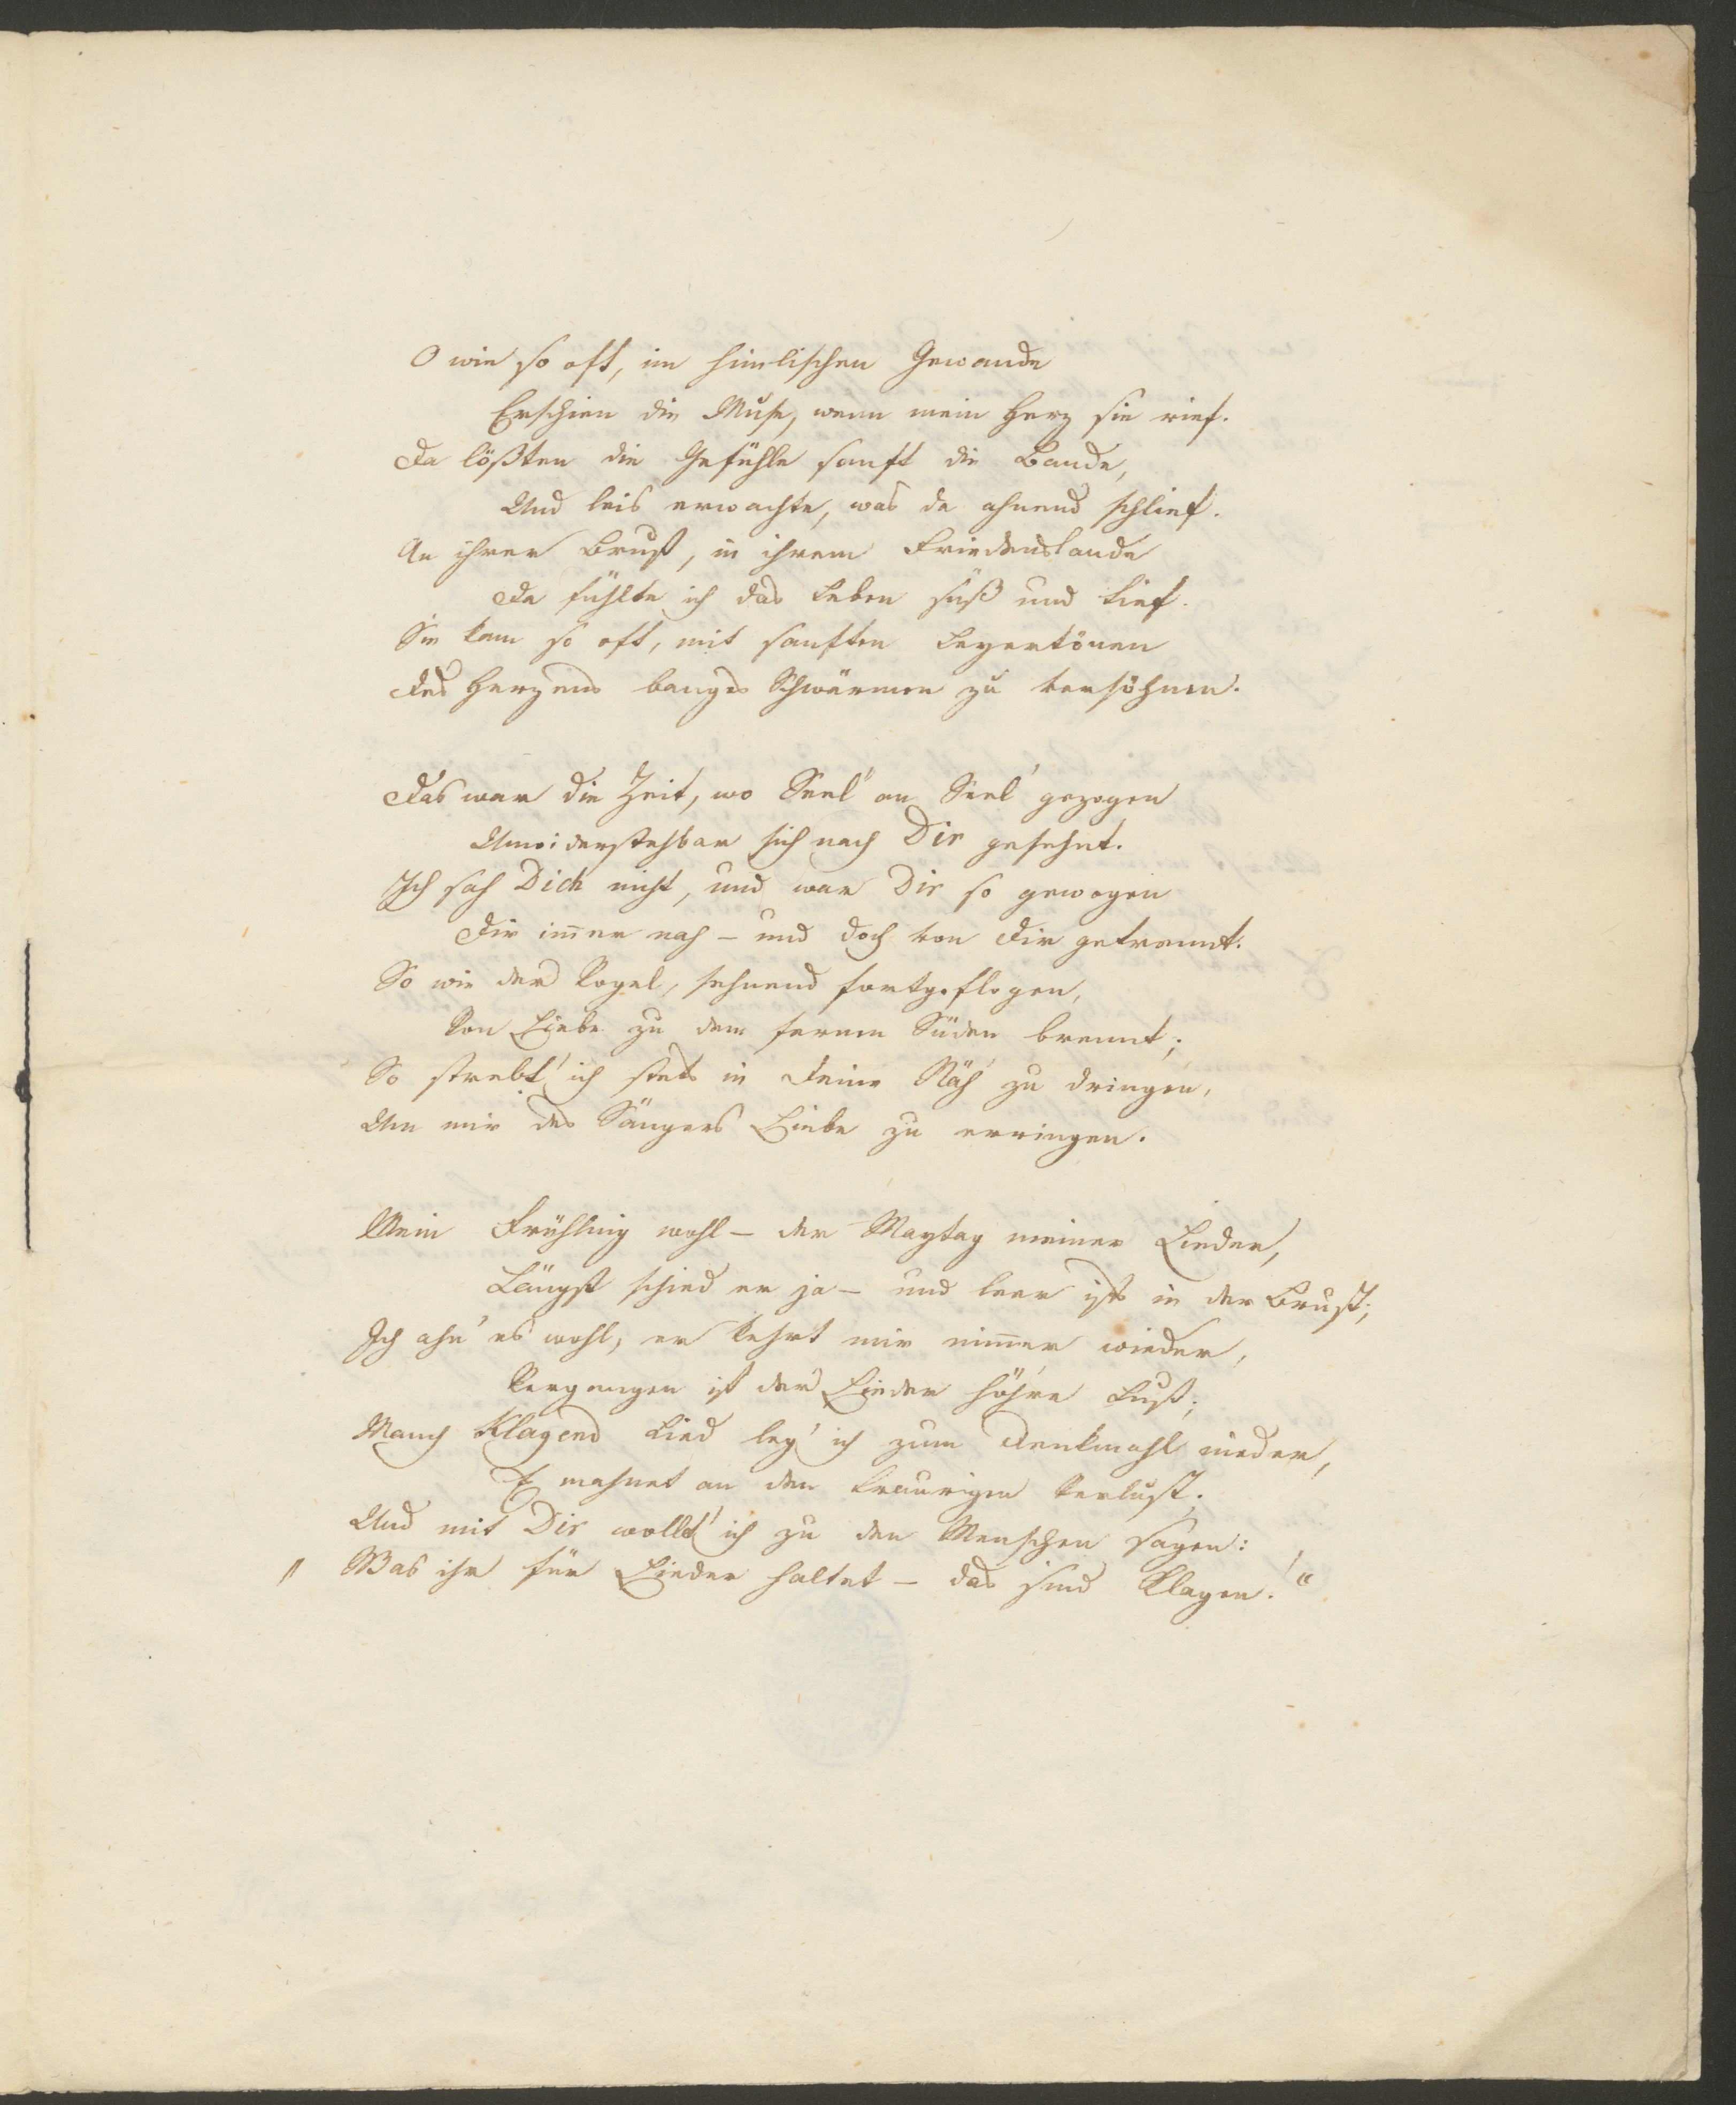 O wie so oft, im himlischen Gewande
Erschien die Muse, wenn mein Herz sie rief.
Da lößten die Gefühle sanft die Bande,
Und leis erwachte, was da ahnend schlief.
An ihrer Brust, in ihrem Friedenslande
Da fühlte ich das Leben süß und tief.
Sie kam so oft, mit sanften Leyertönen
Des Herzens banges Schwärmen zu versöhnen.
Das war die Zeit, wo Seel' an Seel' gezogen
Unwiderstehbar sich nach Dir gesehnt.
Ich sah Dich nicht, und war Dir so gewogen
Dir im̅er nah – und doch von Dir getrennt.
So wie der Vogel, sehnend fortgeflogen,
Von Liebe zu dem fernen Süden brennt;
So strebt' ich stets in Deine Näh' zu dringen,
Um mir des Sängers Liebe zu erringen.
Mein Frühling wohl – der Maytag meiner Lieder,
Längst schied er ja – und leer ists in der Brust;
Ich ahn' es wohl, er kehrt mir nim̅er wieder,
Vergangen ist der Lieder höh're Lust;
Manch klagend Lied leg' ich zum Denkmahl nieder,
Es mahnet an den traurigen Verlust.
Und mit Dir wollt' ich zu den Menschen sagen:
„Was ihr für Lieder haltet – das sind Klagen!“